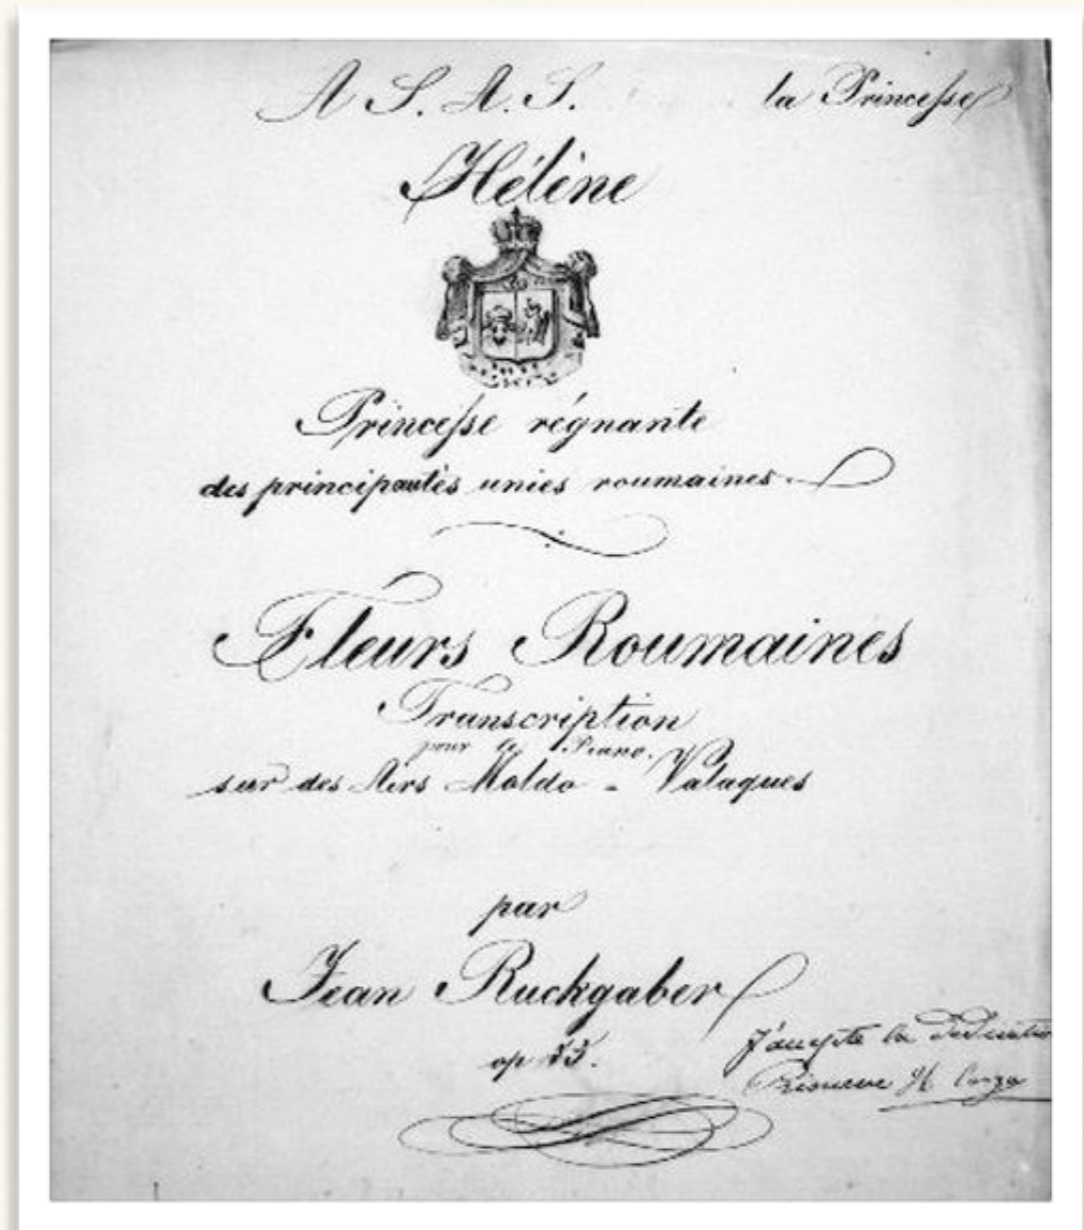 A S. A. S. la Princesse
Hélène
Princesse régnante
des principautés unies roumaines.
Fleurs Roumaines
Transcription
pour le Piano.
sur des Airs Moldo - Valaques
par
Jean Ruckgaber
op
J'accepte la
H Couza